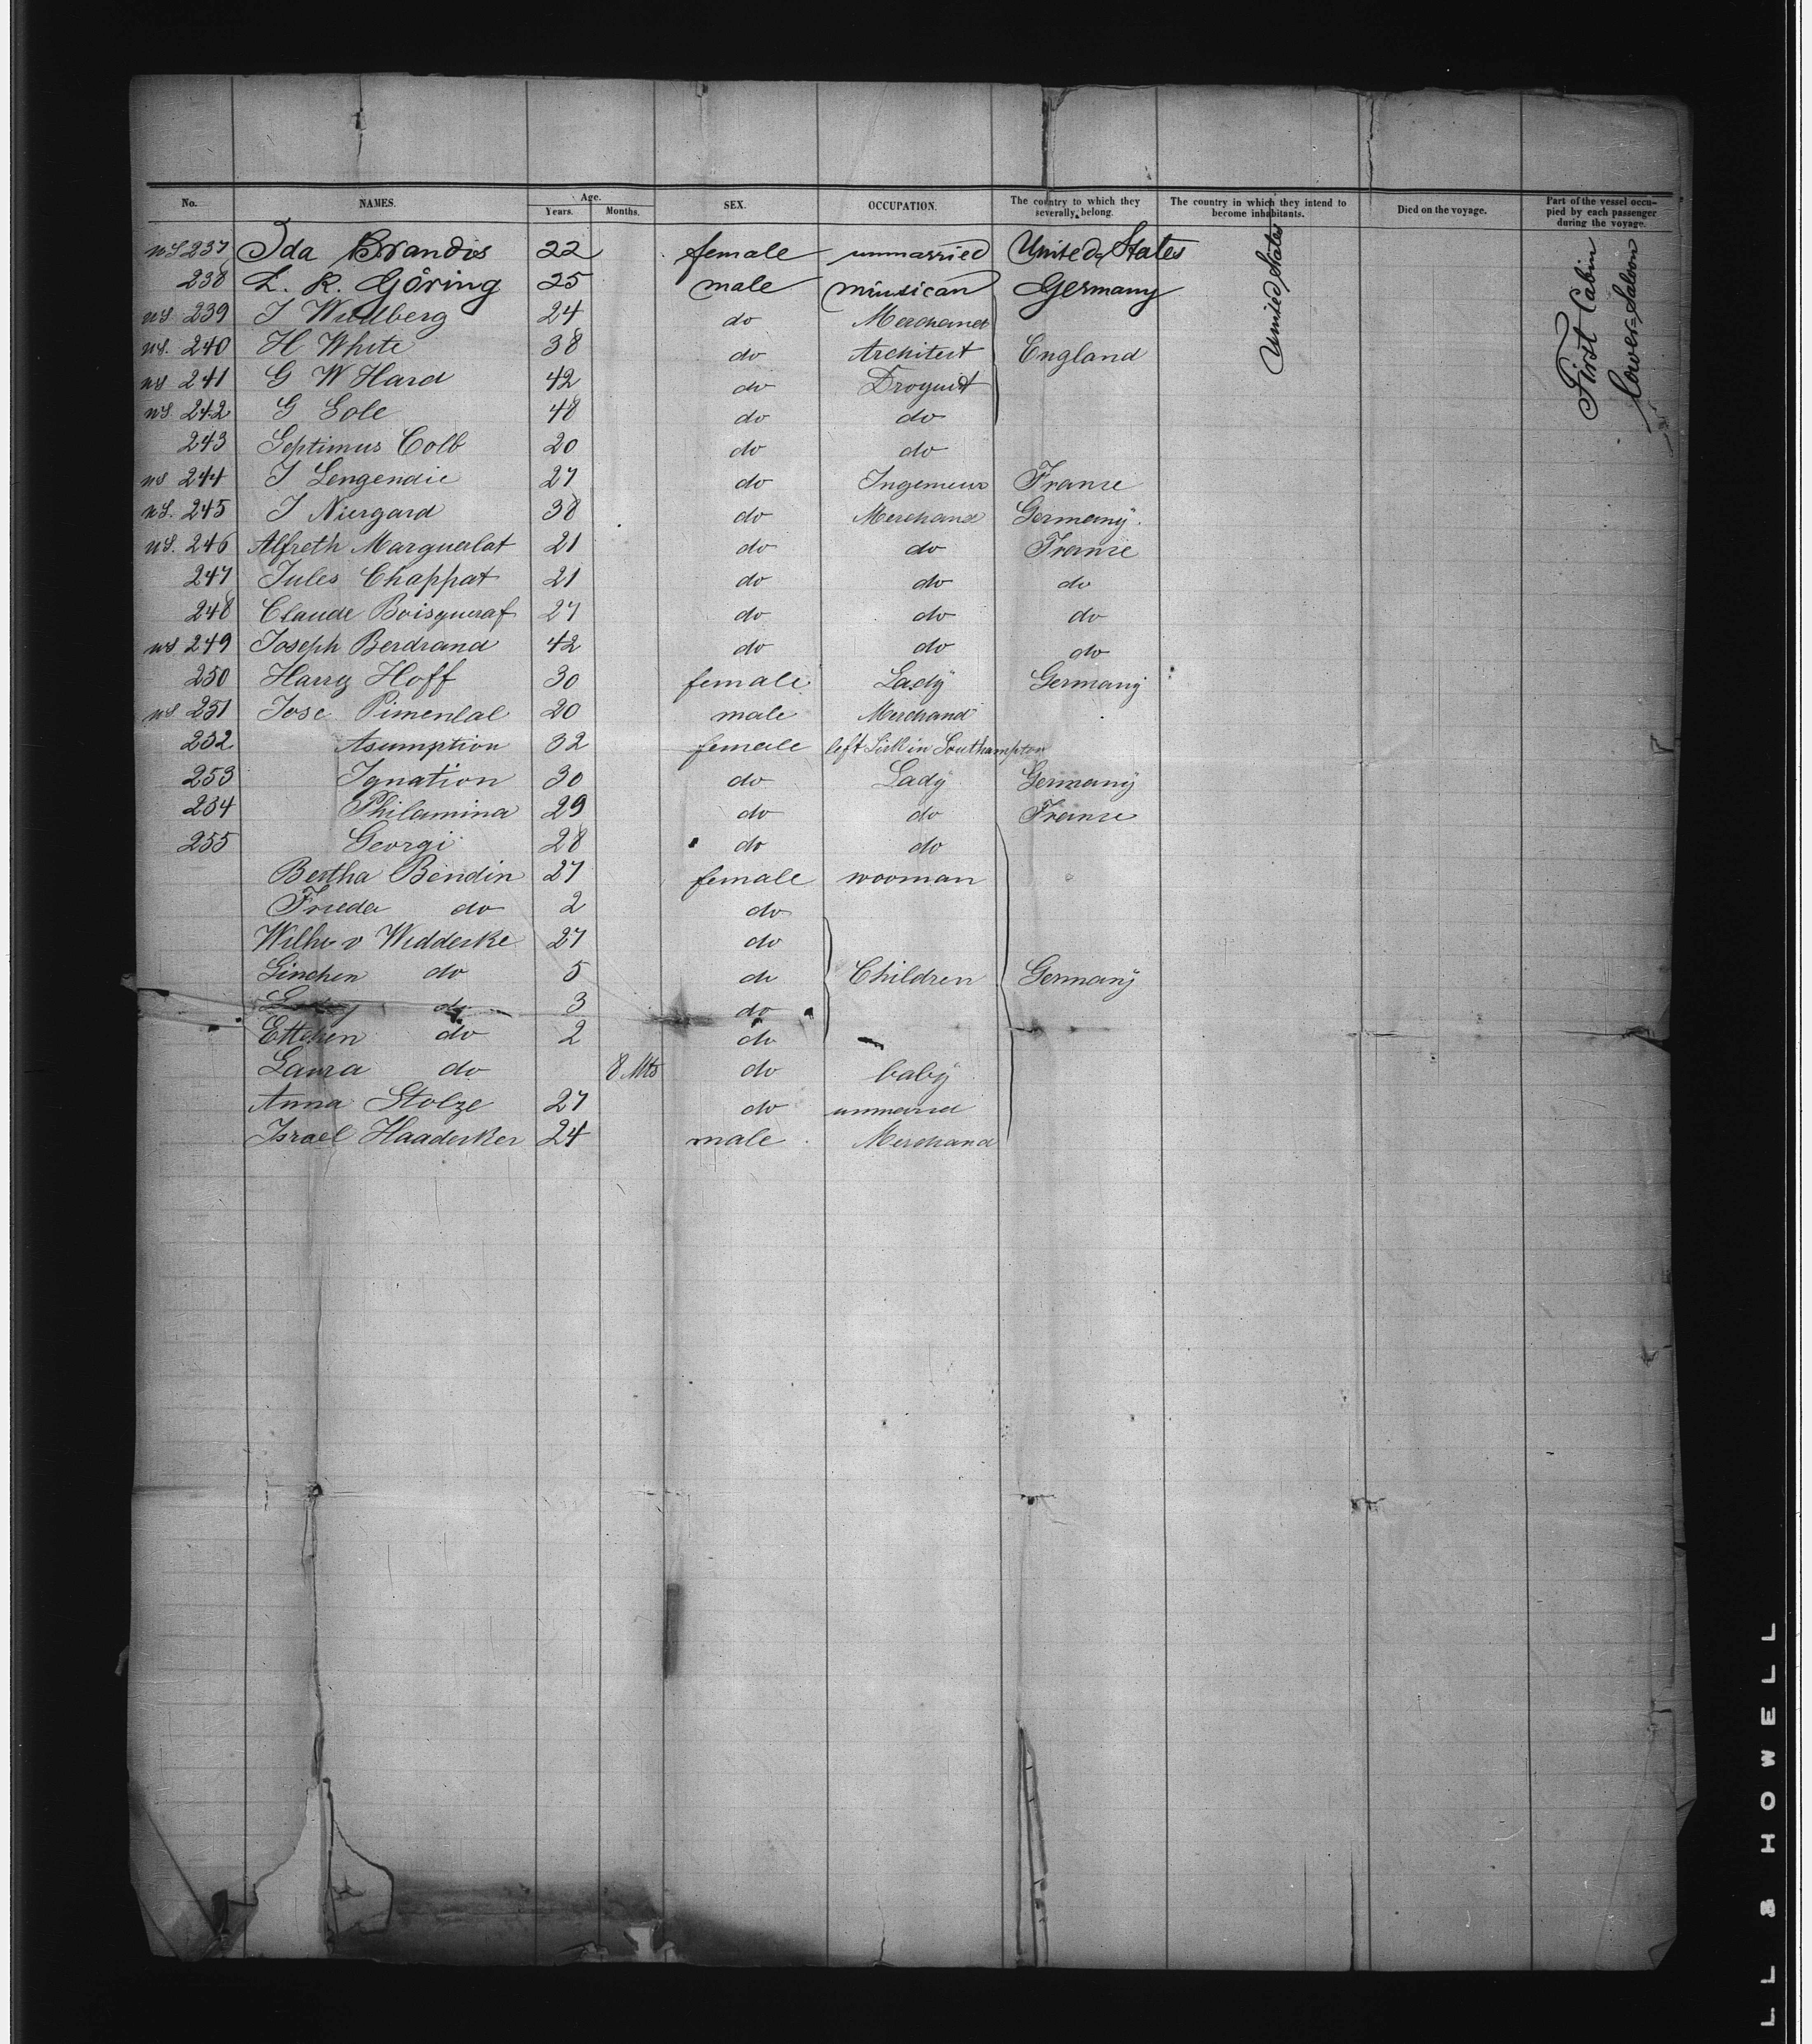 No. NAMES. Age. Years. Months. SEX. OCCUPATION. The country to which they severally belong. The country in which they intend to become inhabitants. Died on the voyage. Part of the vessel occupied by each passenger during the voyage.
237 Ida Brandis 22 female unmarried United States
238 L. R. Göring 25 male miusican Germany
239 I Wulberg 24 do Merchand
240 H White 38 do Architect England
241 G W Hard 42 do Droguist
242 G Sole 48 do do
243 Septimus Colb 20 do do
244 I Lengendie 27 do Ingenieur France
245 I Niergard 38 do Merchand Germany
246 Alfreth Marguerlat 21 do do France
247 Jules Chappat 21 do do do
248 Claude Boisgueraf 27 do do do
249 Joseph Berdrand 42 do do do
250 Harry Hoff 30 female Lady Germany
251 Jose Pimenlal 20 male Merchand
252 Asumption 32 female left Sick in Southampton
253 Ignation 30 do Lady Germany
254 Philamina 29 do do France
255 Georgi 28 do do
Bertha Bendin 27 female wooman
Frieda do 2 do
Wilh. v Widderke 27 do
Linchen do 5 do Children Germany
do 3 do
Ettchen do 2 do
Laura do 8 Mts do baby
Anna Stolze 27 do unmarried
Israel Haaderker 24 male Merchand
United States
First Cabin
Lower-Saloon
LL & HOWELL